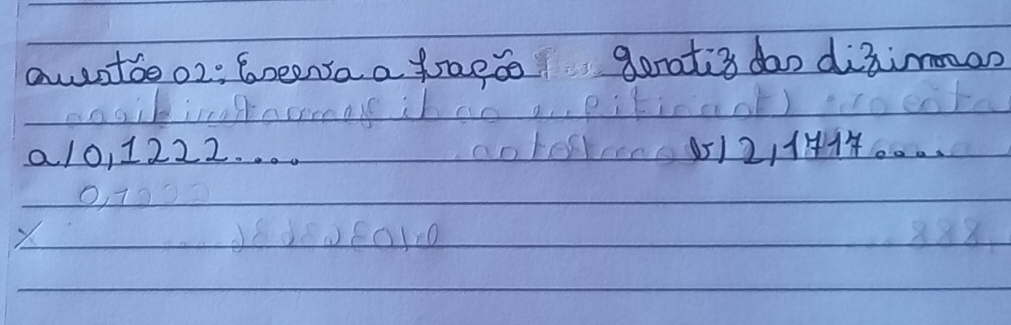 Questão 02: Escreva a fração geratiz das dizimas
a) 0,1222.... b) 2,1717....
0,1222
X